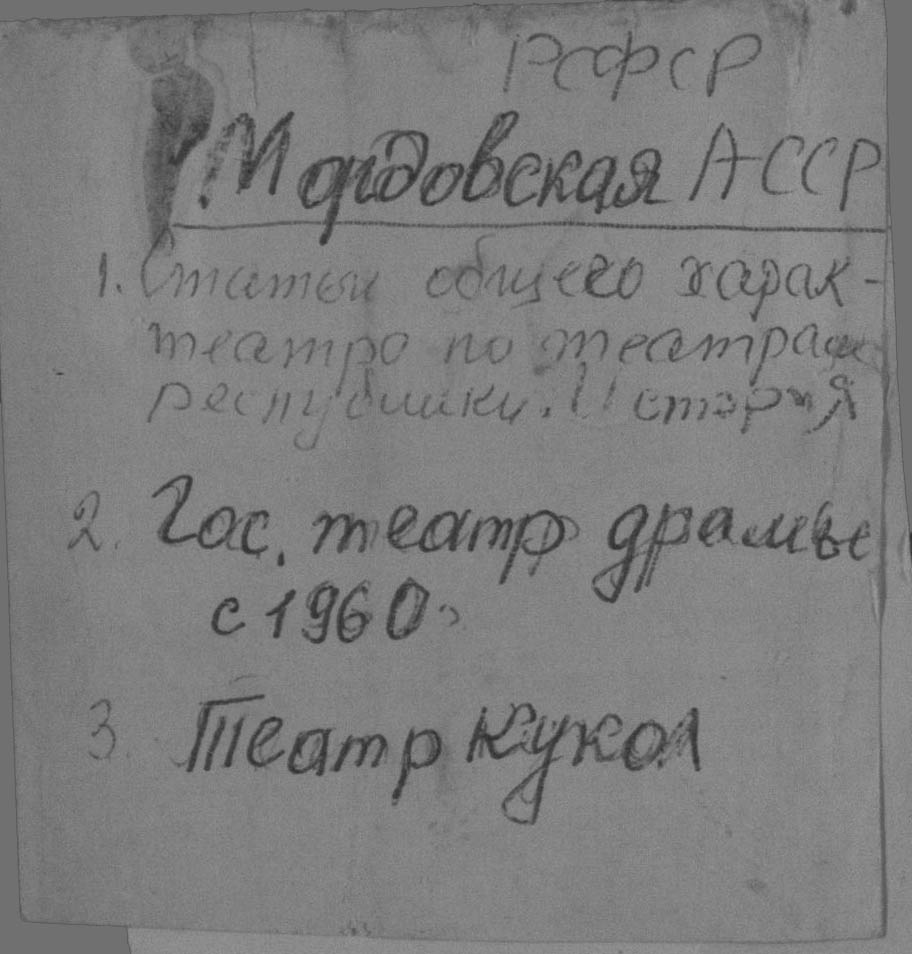 РСФСР
Мордовская АССР
1. Статьи общего харак-
театро по театрам
республики. История
2. Гос. театр драмы
с 1960
3. Театр Кукол